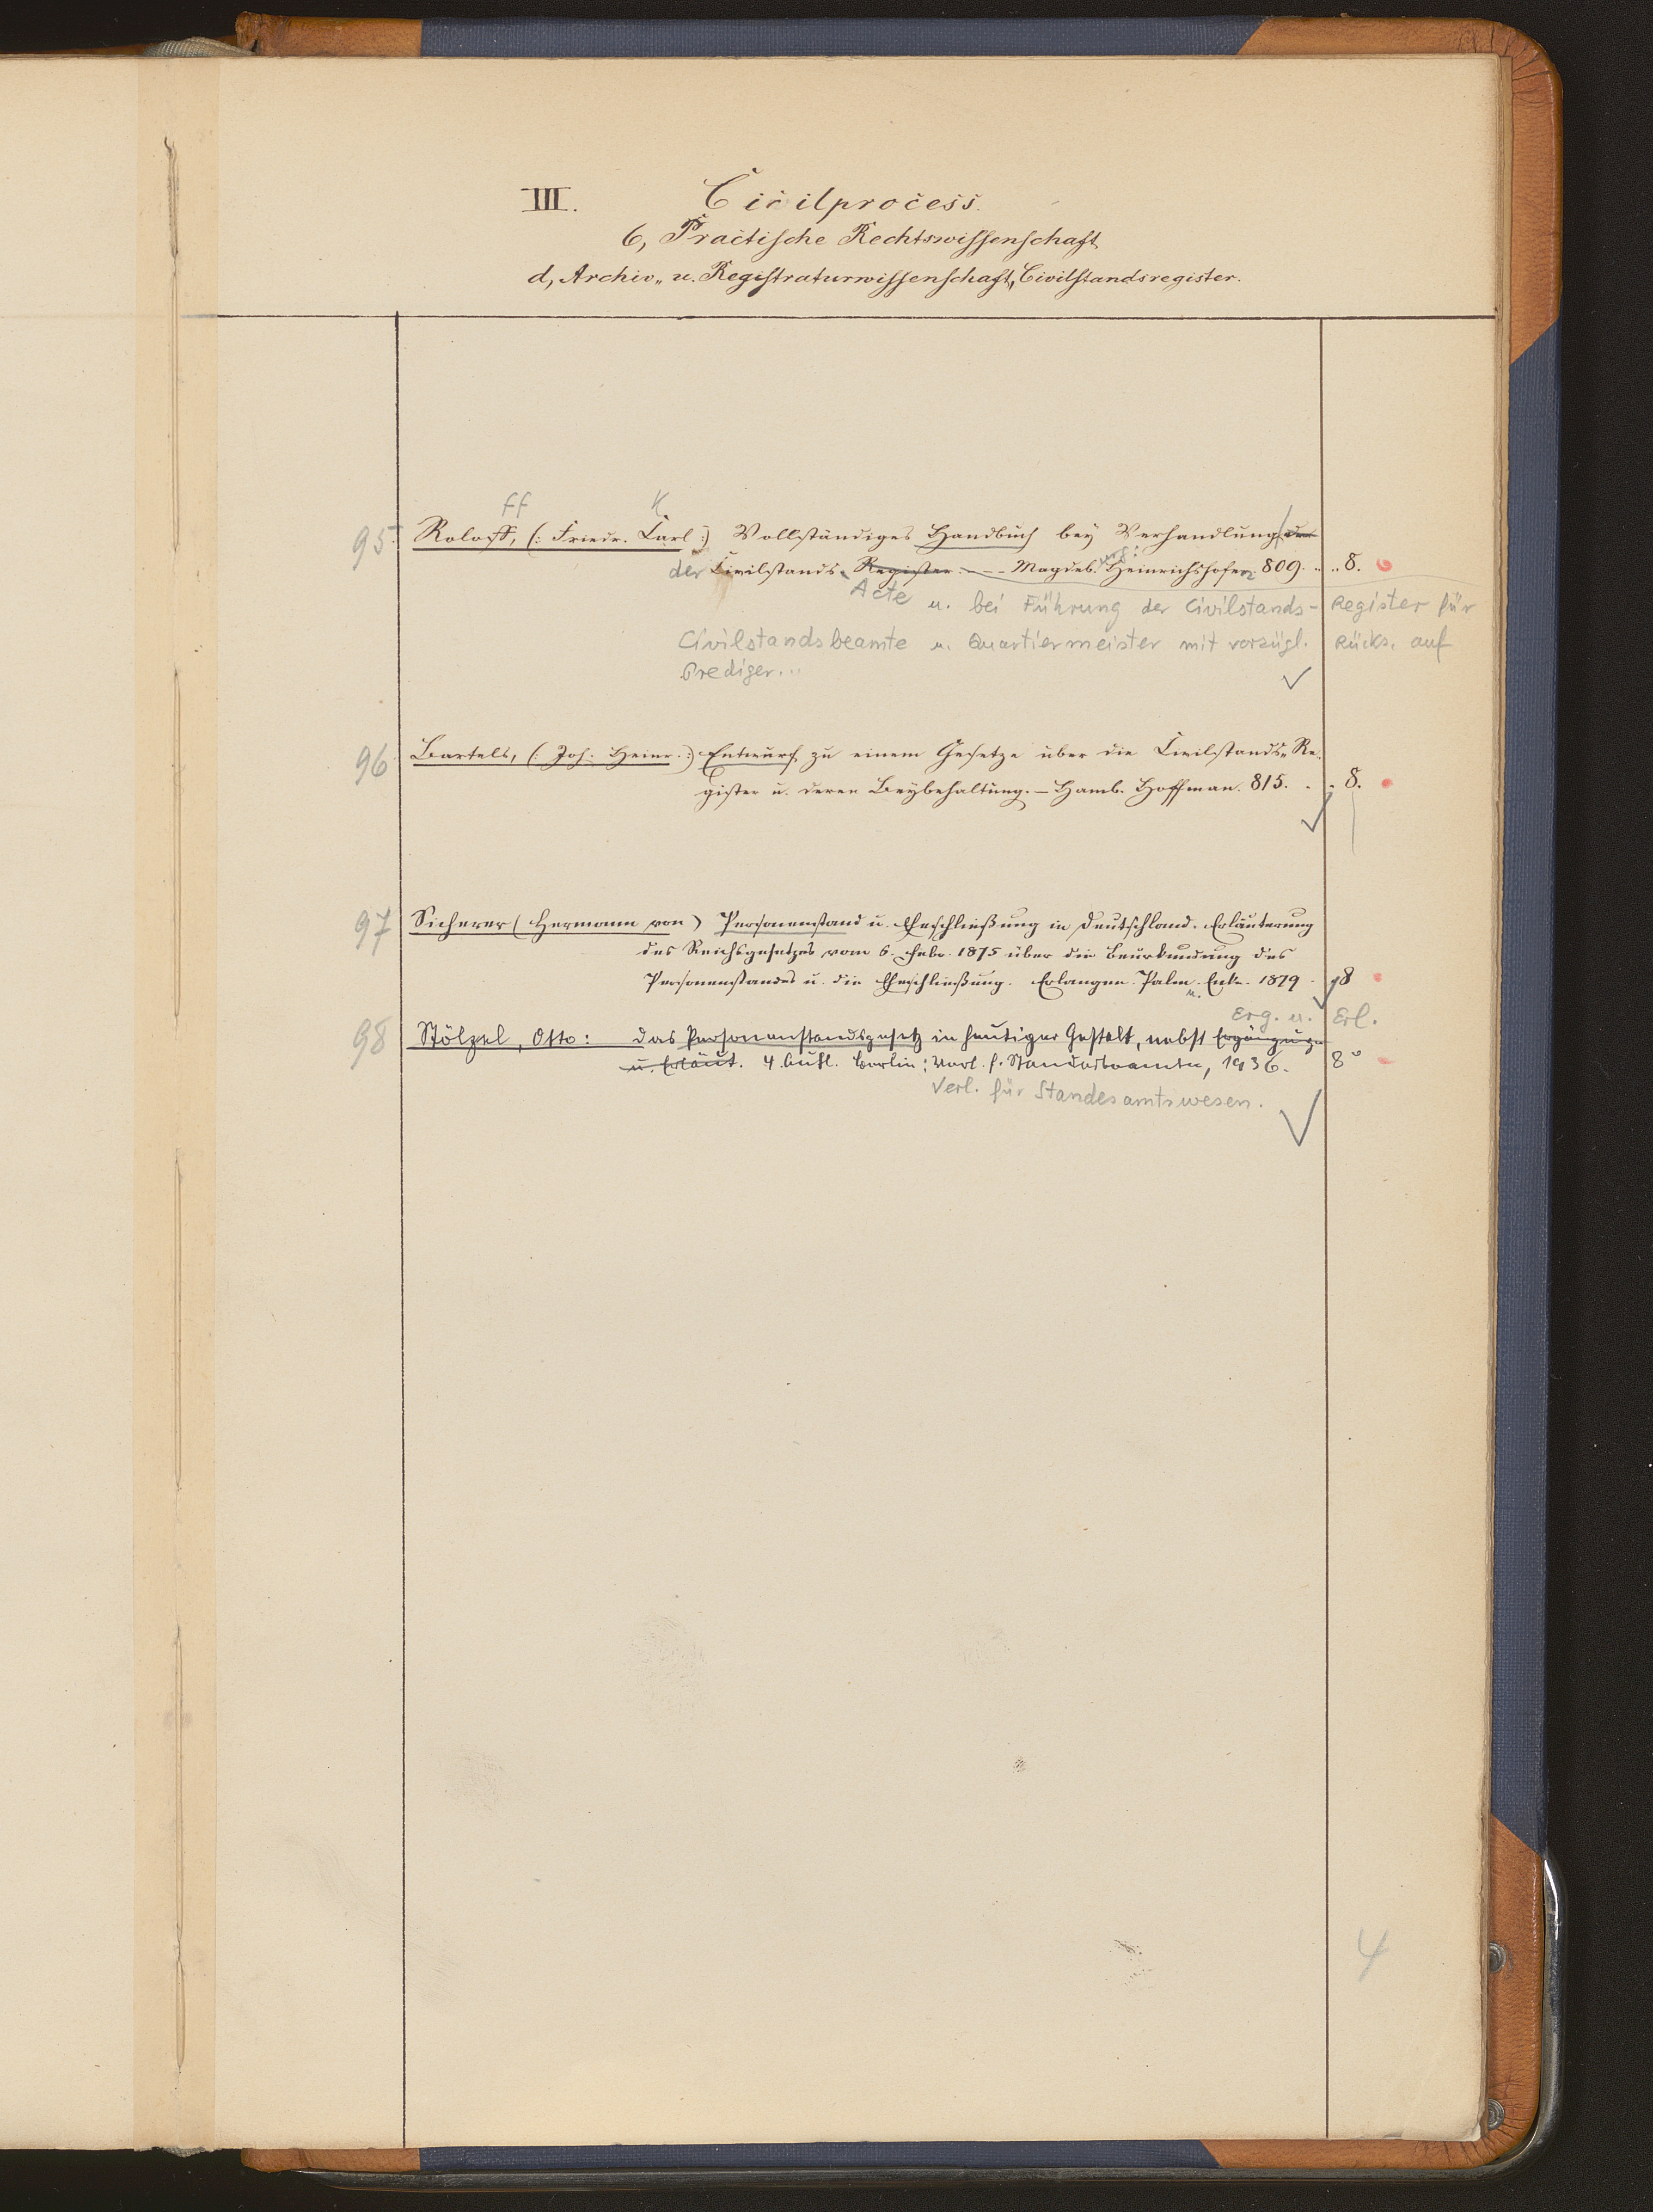 III. Civilprocess.
6, Practische Rechtswissenschaft
d, Archiv- u. Registraturwissenschaft, Civilstandsregister.
ff K
95. Roloff, (: Friedr. Carl :) Vollständiges Handbuch bey Verhandlung der
der Civilstands-Register. - - Magdeb. Heinrichshofen 809. .. 8.
Acte u. bei Führung der Civilstands- Register für
Civilstandsbeamte u. Quartiermeister mit vorzügl. Rücks. auf
Prediger...
96 Bartels, (: Joh. Heinr. :) Entwurf zu einem Gesetze über die Civilstands-Re-
gister u. deren Beybehaltung. - Hamb. Hoffman. 815. . . 8.
97 Sicherer (Hermann von) Personenstand u. Eheschließung in Deutschland. Erläuterung
des Reichsgesetzes vom 6. Febr. 1875 über die Beurkundung des
Personenstandes u. die Eheschließung. Erlangen. Palm u. Enke. 1879. 8
Erg. u. Erl.
98 Stölzel, Otto: Das Personenstandsgesetz in heutiger Gestalt, nebst Ergänzungen
u. Erläut. 4. Aufl. Berlin: Verl. f. Standesbeamte, 1936. 8°
Verl. für Standesamtswesen.
4